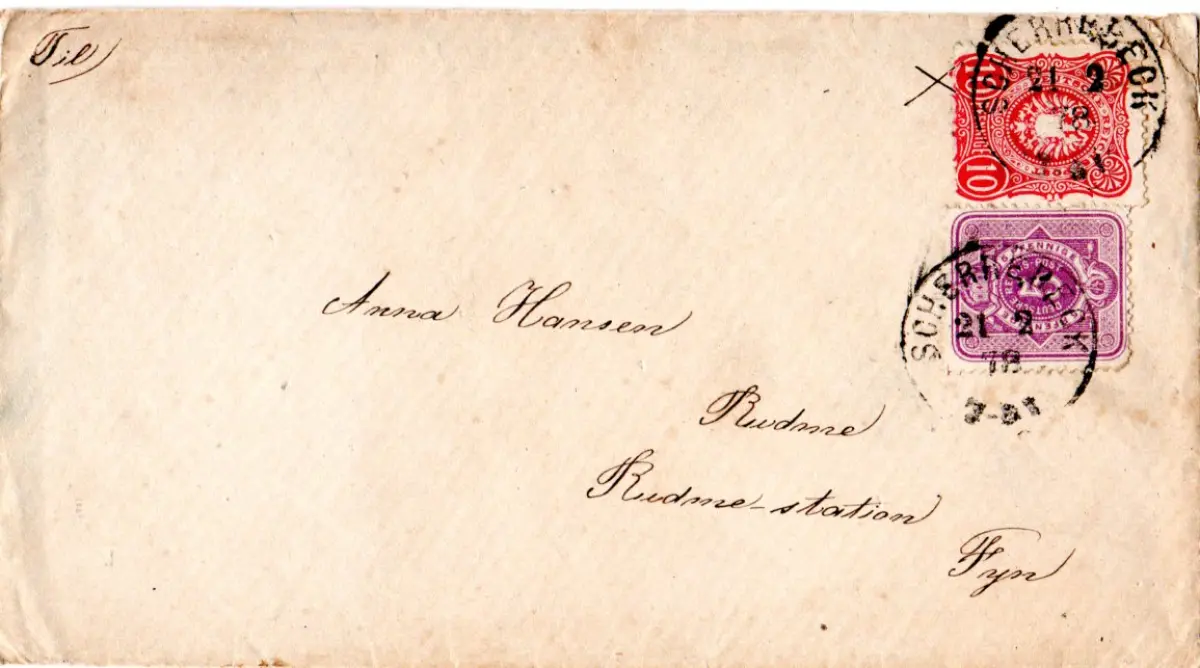 Til
SCHERREBECK
21 2
78
10 10
PFENNIGE
SCHERREBECK
21 2
78
Anna Hansen
Rudme
Rudme-station
Fyn